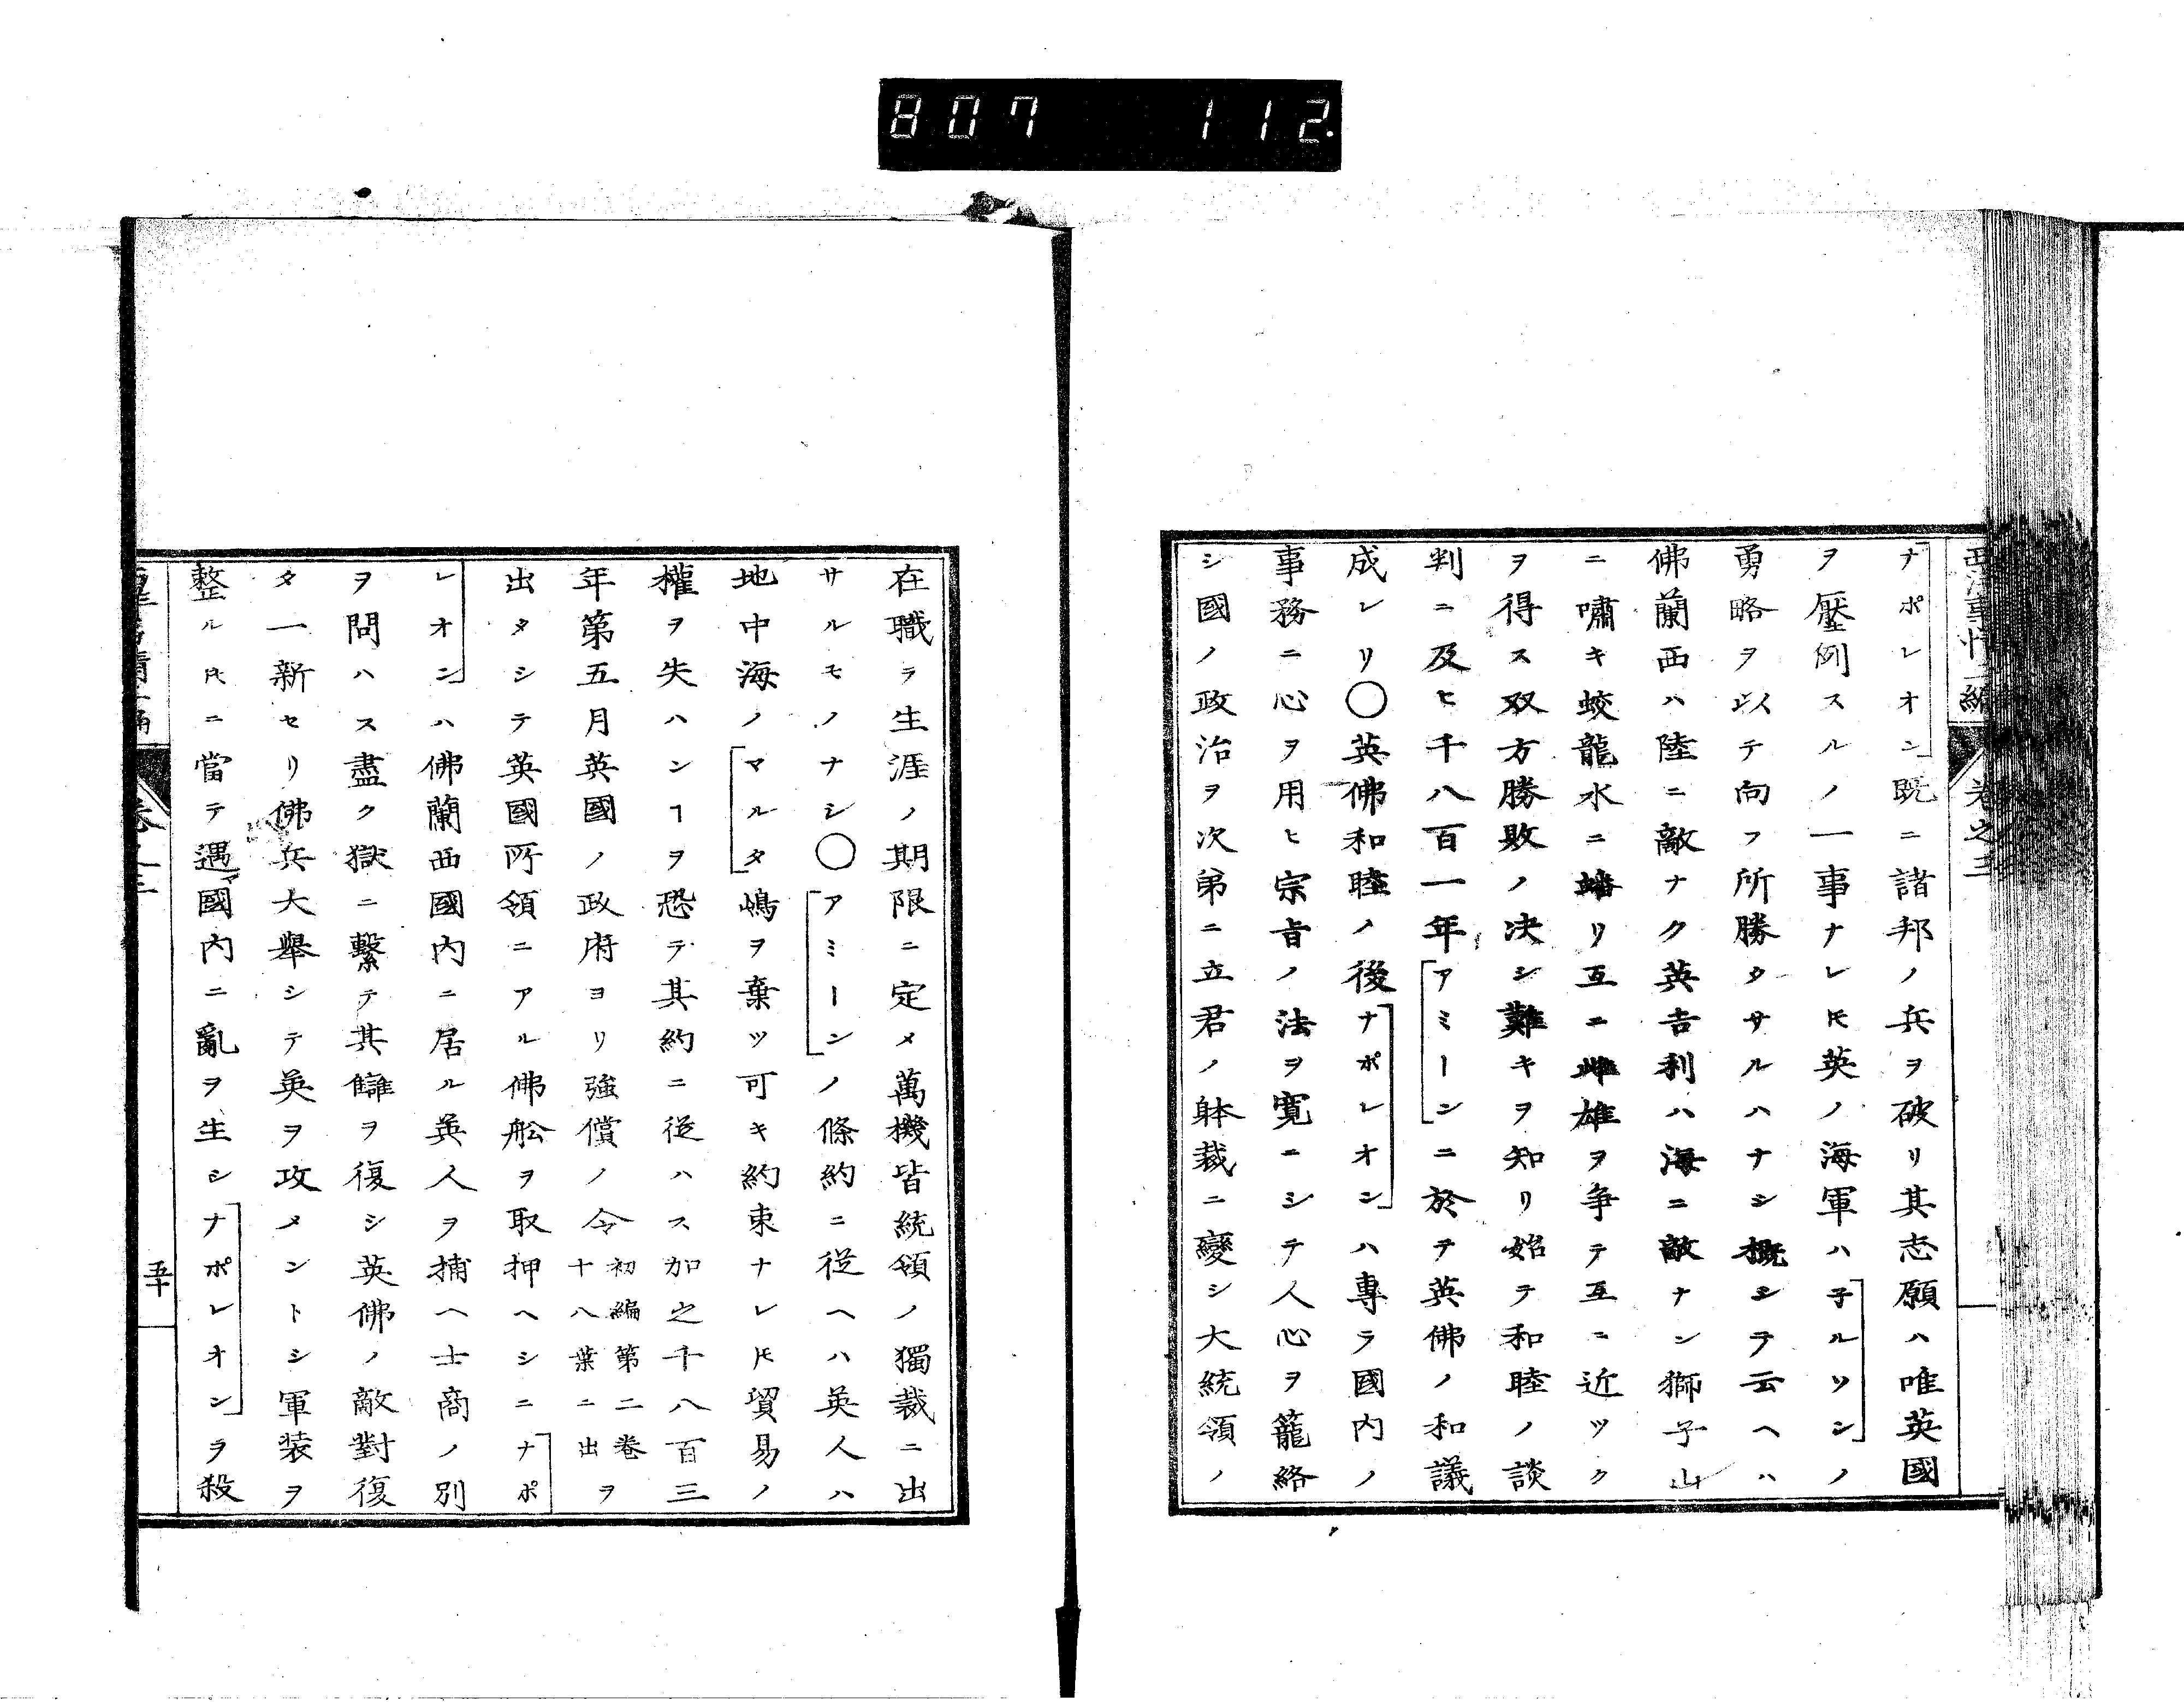 807 112.
西洋事情二編 卷之三
ナポレオン既ニ諸邦ノ兵ヲ破リ其志願ハ唯英國
ヲ壓倒スルノ一事ナレ𪜈英ノ海軍ハ子ルソンノ
勇略ヲ以テ向フ所勝タサルハナシ概シテ云ヘハ
佛蘭西ハ陸ニ敵ナク英吉利ハ海ニ敵ナシ獅子山
ニ嘯キ蛟龍水ニ蟠リ互ニ雌雄ヲ爭テ互ニ近ツク
ヲ得ス双方勝敗ノ决シ難キヲ知リ始テ和睦ノ談
判ニ及ヒ千八百一年アミーンニ於テ英佛ノ和議
成レリ〇英佛和睦ノ後ナポレオンハ專ラ國内ノ
事務ニ心ヲ用ヒ宗旨ノ法ヲ寛ニシテ人心ヲ籠絡
シ國ノ政治ヲ次第ニ立君ノ躰裁ニ變シ大統領ノ
在職ヲ生涯ノ期限ニ定メ萬機皆統領ノ獨裁ニ出
サルモノナシ〇アミーンノ條約ニ從ヘハ英人ハ
地中海ノマルタ嶋ヲ棄ツ可キ約束ナレ𪜈貿易ノ
權ヲ失ハンヿヲ恐テ其約ニ從ハス加之千八百三
年第五月英國ノ政府ヨリ強償ノ令初編第二卷十八葉ニ出ヲ
出タシテ英國所領ニアル佛舩ヲ取押ヘシニナポ
レオンハ佛蘭西國内ニ居ル英人ヲ捕ヘ士商ノ別
ヲ問ハス盡ク獄ニ繫テ其讎ヲ復シ英佛ノ敵對復
タ一新セリ佛兵大舉シテ英ヲ攻メントシ軍装ヲ
整ル𪜈ニ當テ遇マ國内ニ亂ヲ生シナポレオンヲ殺
西洋事情二編 卷之三 五十